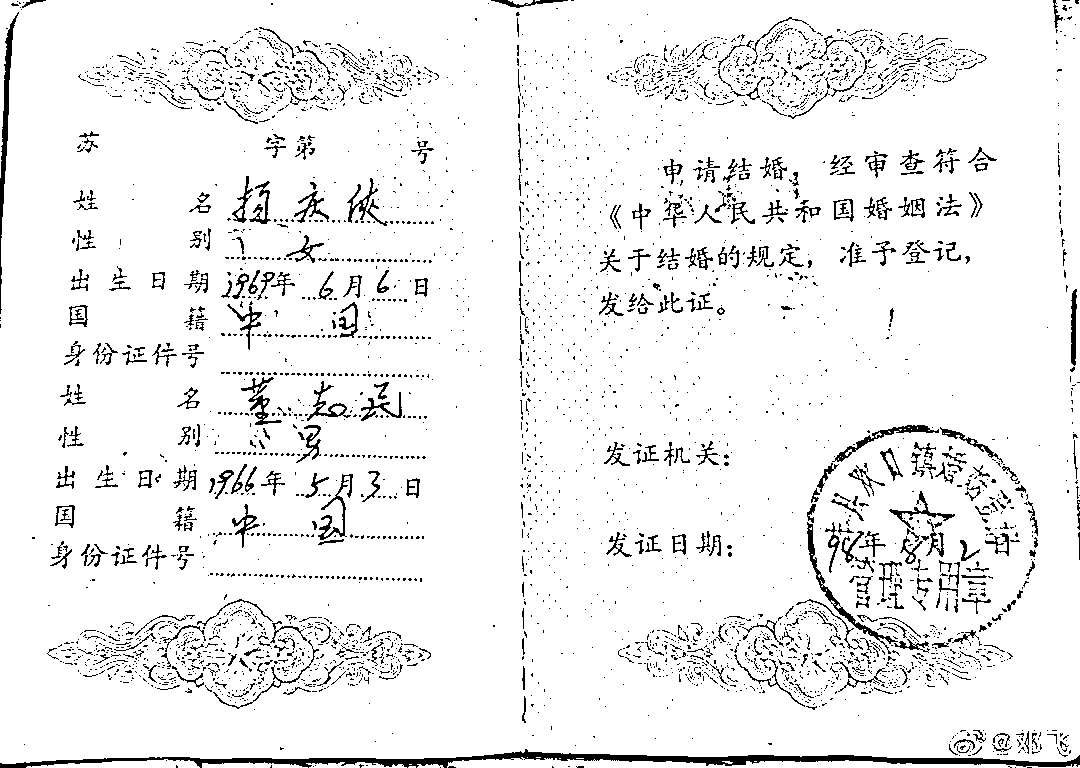 苏 字第 号
姓 名 杨庆侠
性 别 女
出生日期 1969年 6月6日
国 籍 中国
身份证件号
姓 名 董志民
性 别 男
出生日期 1966年 5月3日
国 籍 中国
身份证件号
申请结婚，经审查符合
《中华人民共和国婚姻法》
关于结婚的规定，准予登记，
发给此证。
发证机关：
发证日期： 98年8月2日
欢口镇
管理专用章
@邓飞